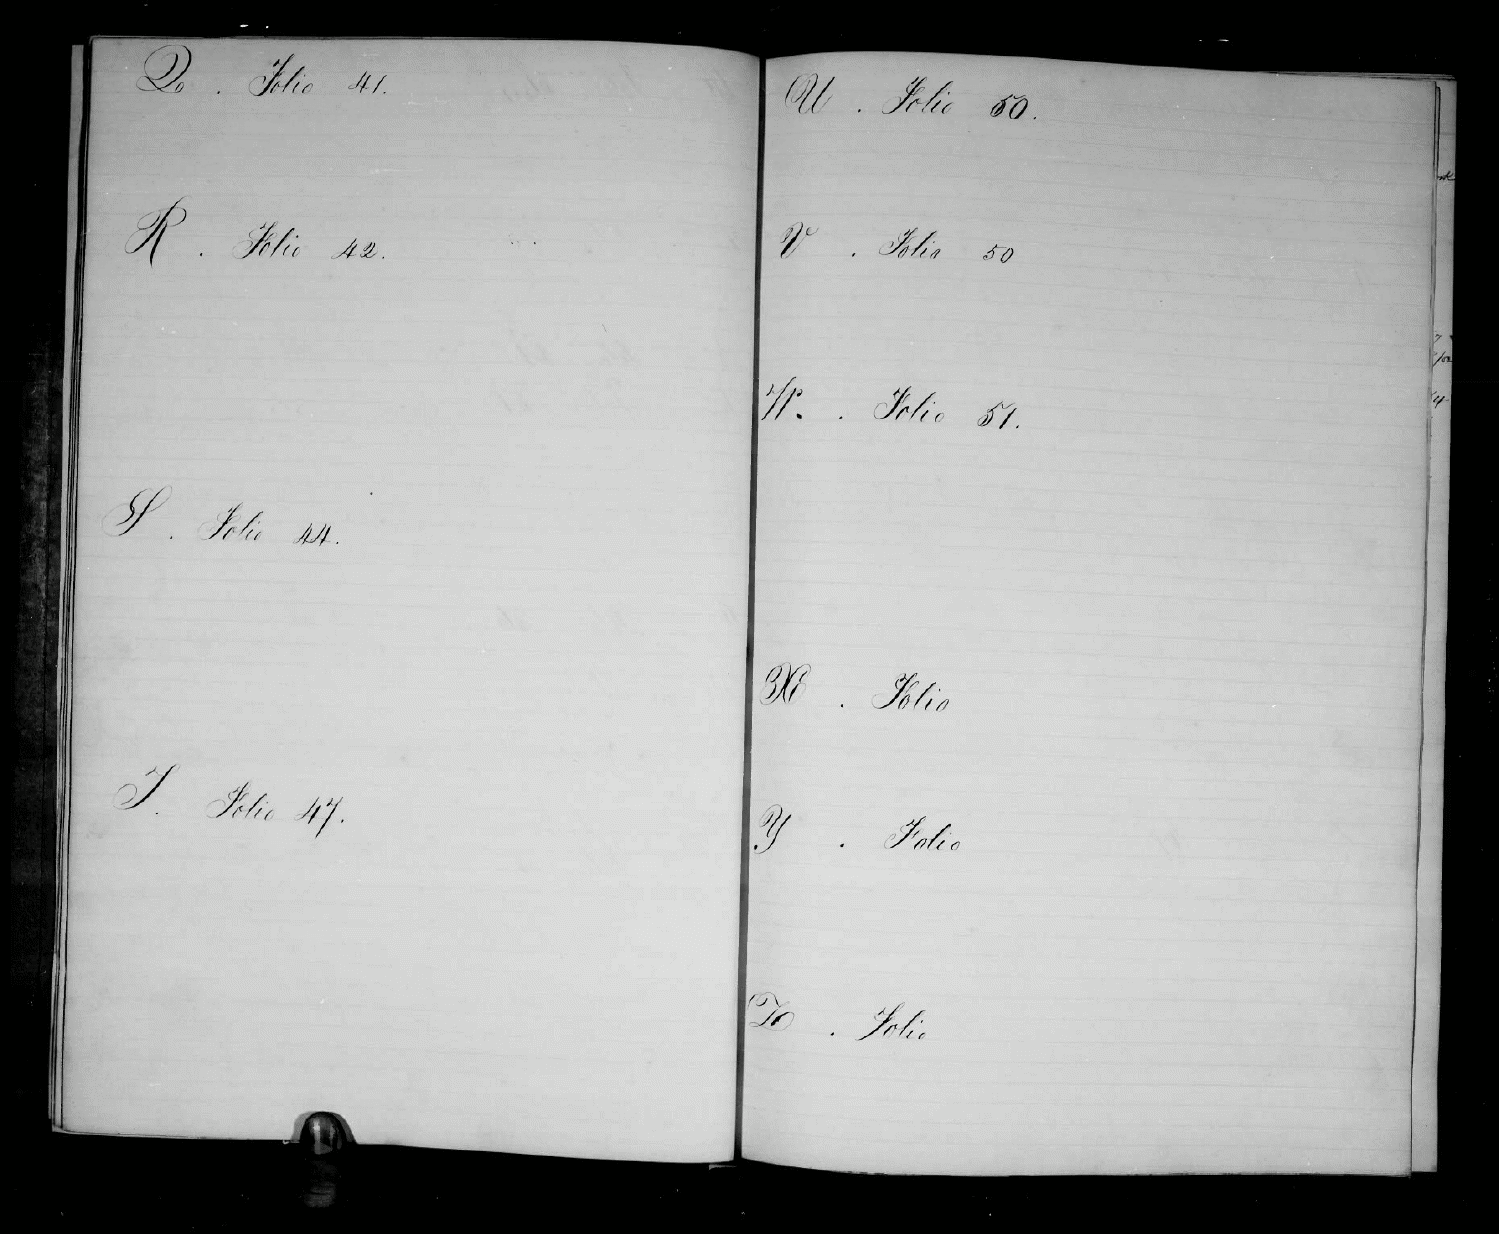 Q . Folio 41.
R . Folio 42.
S . Folio 44.
T . Folio 47.
U . Folio 50.
V . Folio 50
W . Folio 51.
X . Folio
Y . Folio
Z . Folio